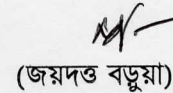 (জয়দত্ত বড়ুয়া)